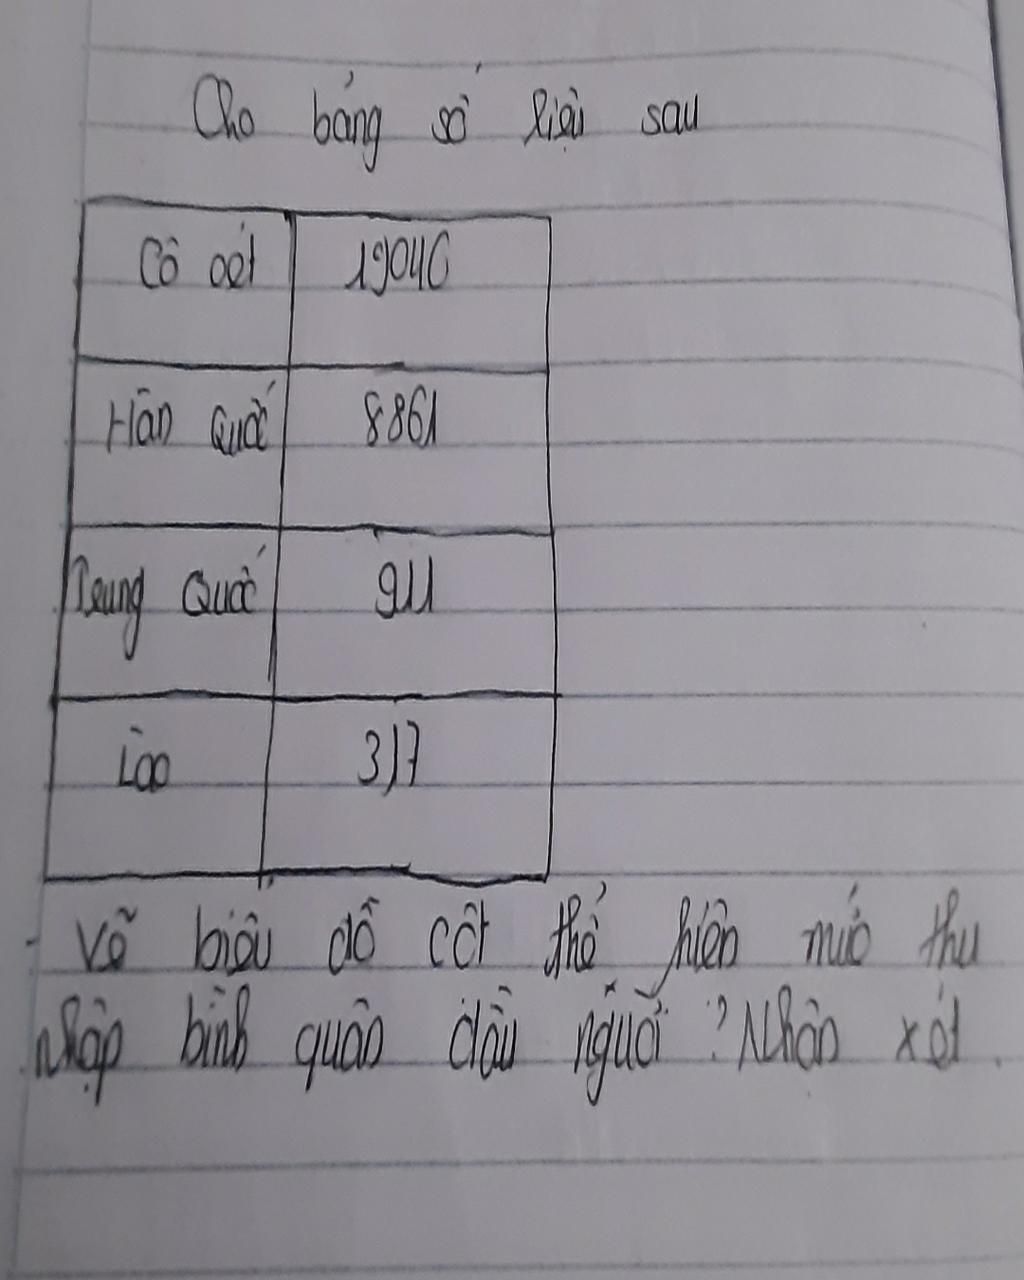 Cho bảng số liệu sau
Cô oét 19040
Hàn Quốc 8861
Trung Quốc 911
Lào 317
- Vẽ biểu đồ cột thể hiện mức thu
nhập bình quân đầu người? Nhận xét.